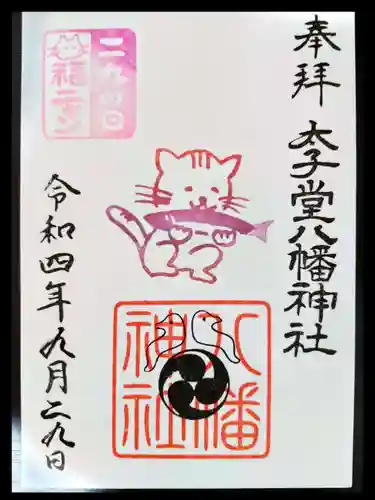 奉拝
太子堂八幡神社
八幡
神社
二九の日
福ニャン
令和四年九月二九日